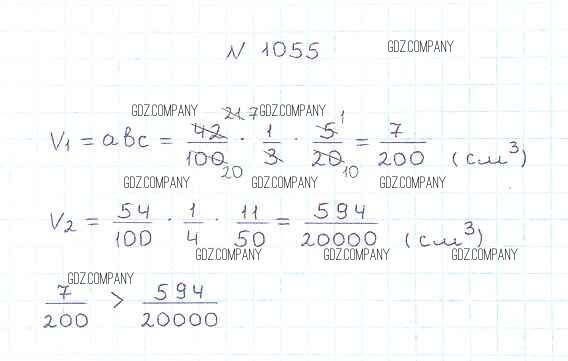 N 1055 GDZ.COMPANY
GDZ.COMPANY 21 7 GDZ.COMPANY 1
V₁ = abc = 42/100 · 1/3 · 5/20 = 7/200 (см³)
20 10
GDZ.COMPANY GDZ.COMPANY GDZ.COMPANY
V₂ = 54/100 · 1/4 · 11/50 = 594/20000 (см³)
GDZ.COMPANY GDZ.COMPANY GDZ.COMPANY
GDZ.COMPANY
7/200 > 594/20000